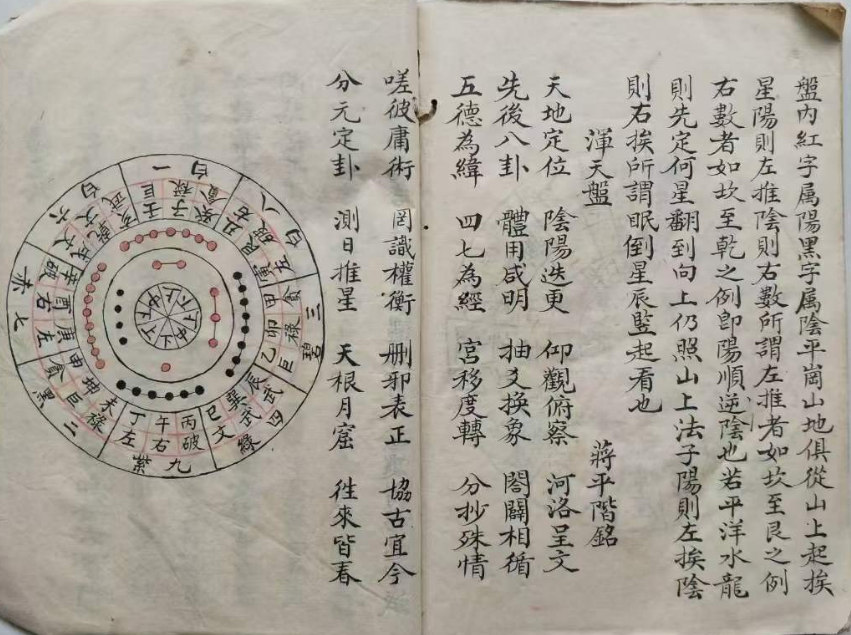 盤内紅字属陽黒字属陰平崗山地俱從山上起挨
星陽則左推陰則右數所謂左推者如坎至艮之例
右數者如坎至乾之例卽陽順逆陰也若平洋水龍
則先定何星翻到向上仍照山上法子陽則左挨陰
則右挨所謂眠倒星辰監起看也
渾天盤 蔣平階銘
天地定位 陰陽迭更 仰觀俯察 河洛呈文
先後八卦 體用咸明 抽爻換象 閤闢相循
五德為緯 四七為經 宮移度轉 分抄殊情
嗟彼庸術 罔識權衡 刪邪表正 協古宜今
分元定卦 測日推星 天根月窟 徃來皆春
一白
八白
三碧
四綠
九紫
二黑
七赤
六白
壬子癸
丑艮
甲卯乙
辰巽巳
丙午丁
未坤申
庚酉辛
乾亥
巨
貪
祿
巨
武武文
破右左
祿巨貪
左右破